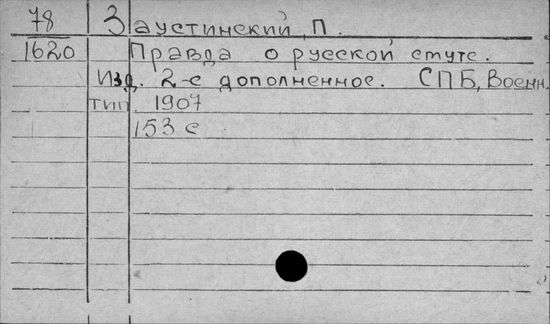 78 Заустинский, П.
1620 Правда о русской смуте.
Изд. 2-е дополненное. СПБ, Военн.
тип 1907
153 с